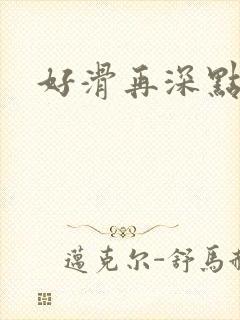 好滑再深點
邁克尔-舒馬赫